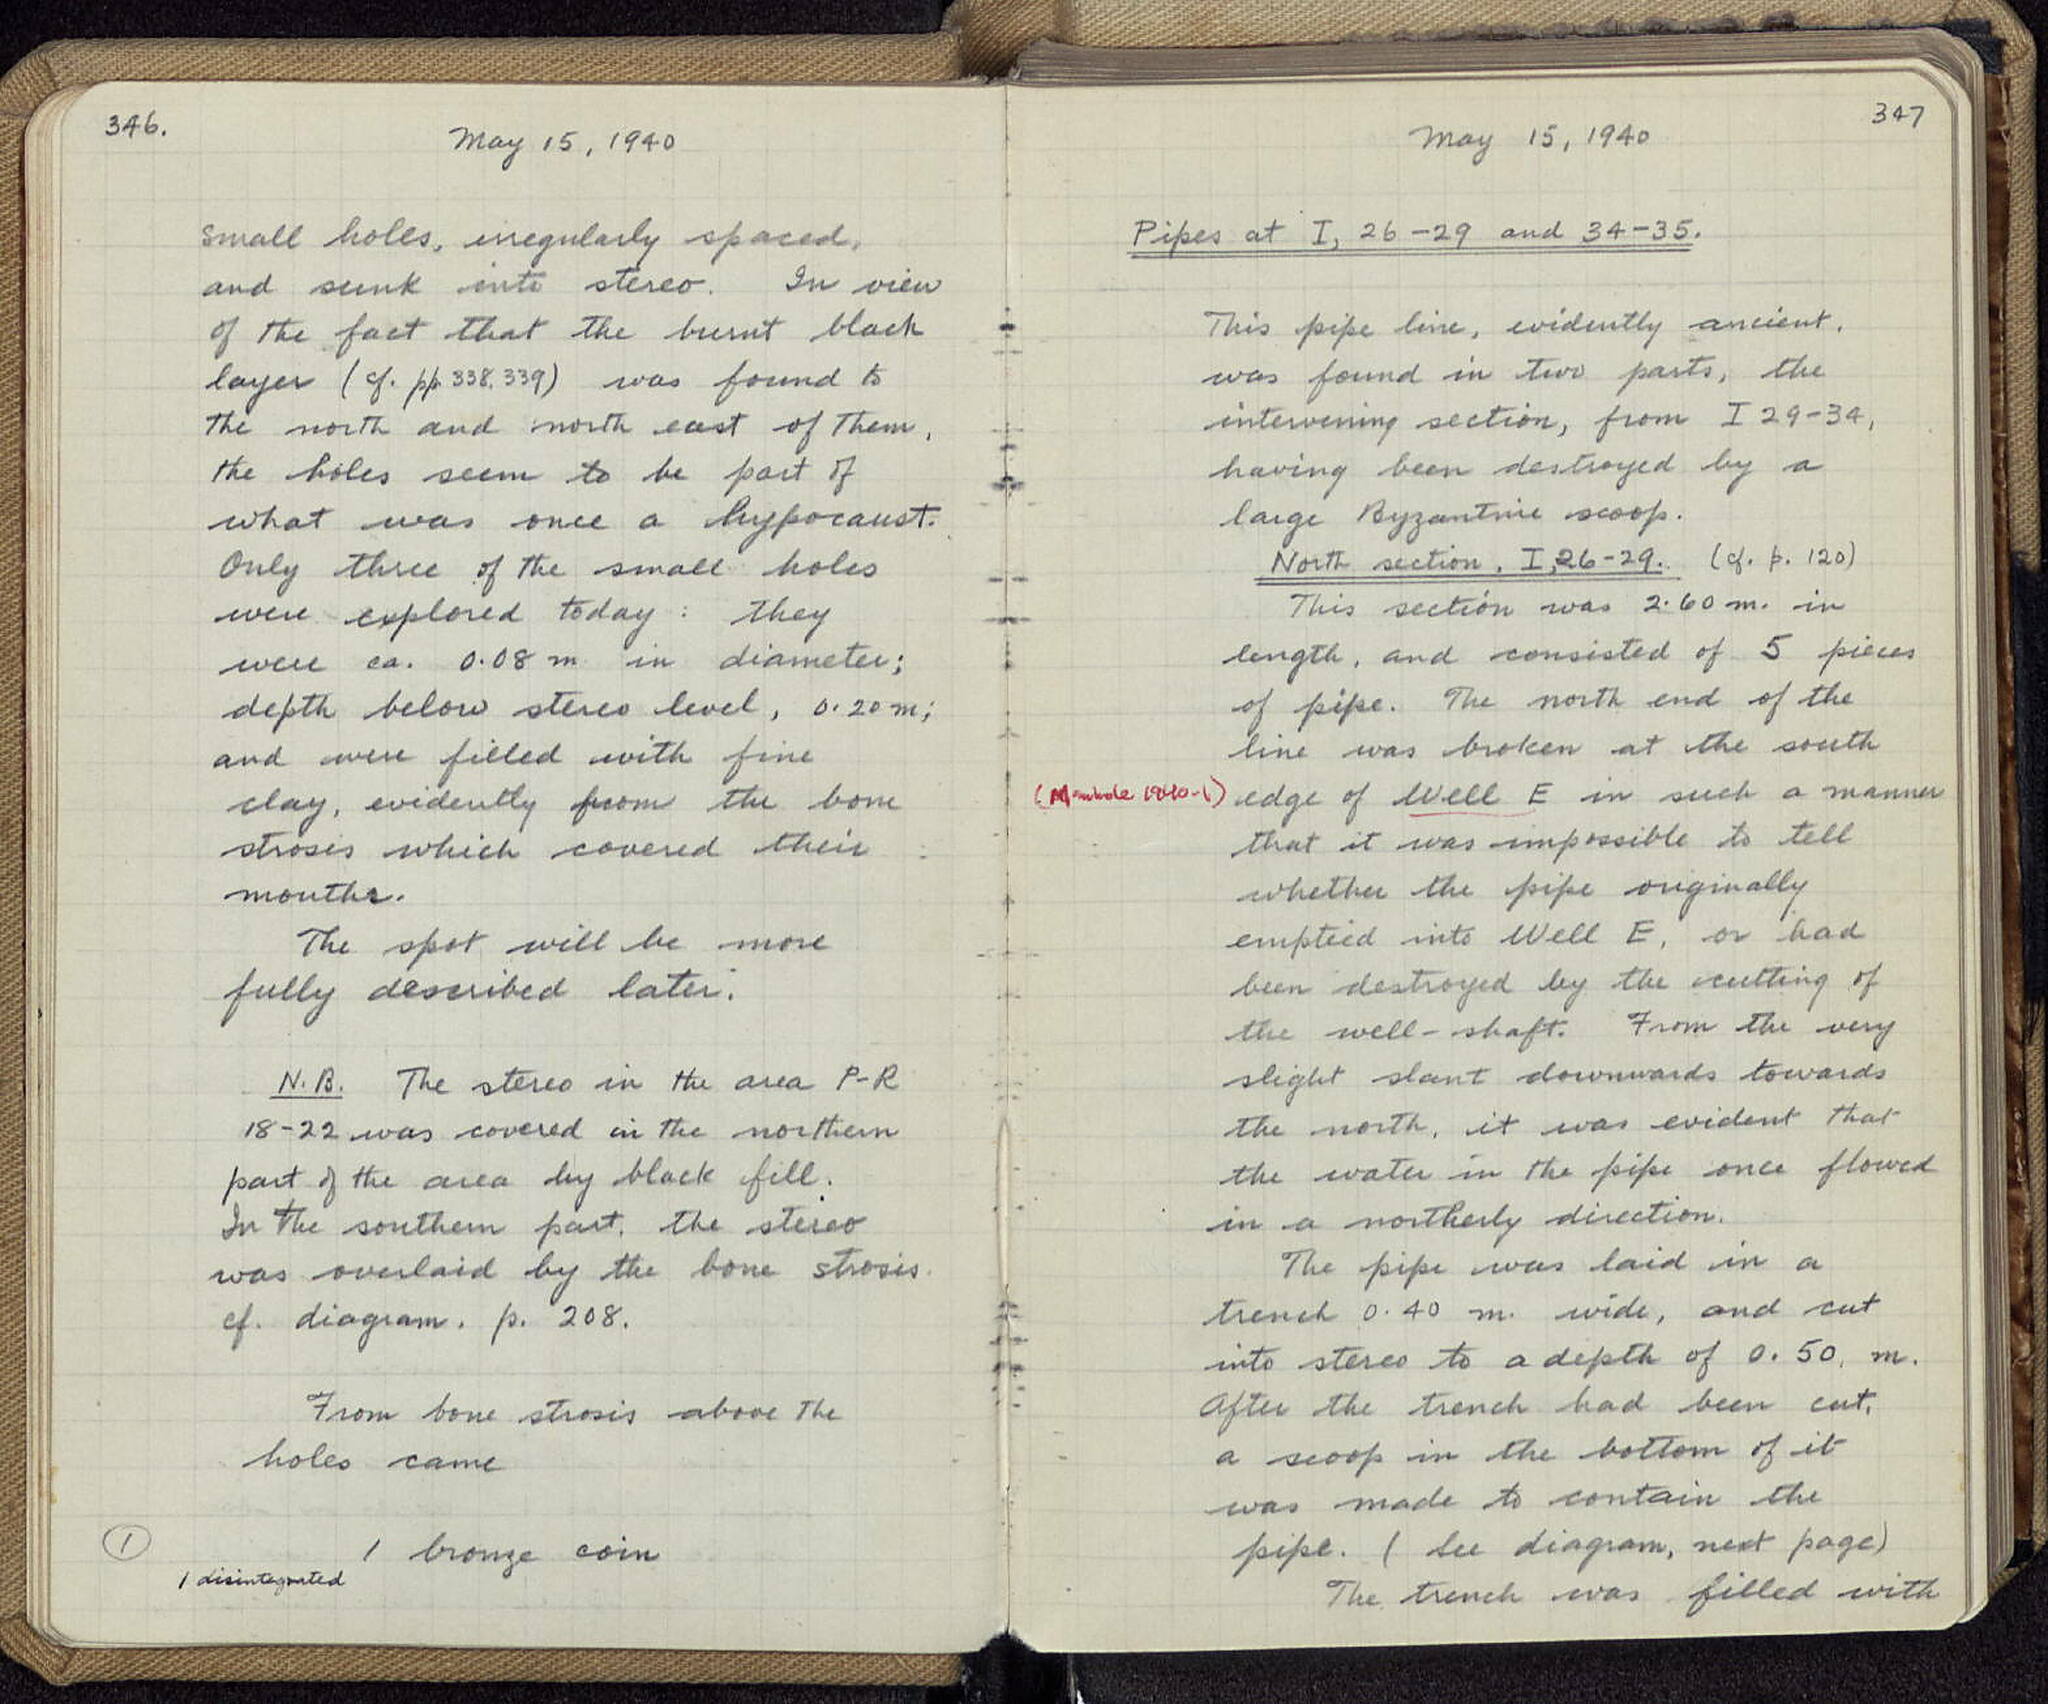 346.
May 15, 1940
small holes, irregularly spaced,
and sunk into stereo. In view
of the fact that the burnt black
layer (cf. pp. 338, 339) was found to
the north and north east of them,
the holes seem to be part of
what was once a hypocaust.
Only three of the small holes
were explored today: they
were ca. 0.08 m in diameter;
depth below stereo level, 0.20 m;
and were filled with fine
clay, evidently from the bone
strosis which covered their
mouths.
The spot will be more
fully described later.
N.B. The stereo in the area P-R
18-22 was covered in the northern
part of the area by black fill.
In the southern part, the stereo
was overlaid by the bone strosis.
cf. diagram, p. 208.
From bone strosis above the
holes came
1
1 bronze coin
1 disintegrated
347
May 15, 1940
Pipes at I, 26-29 and 34-35.
This pipe line, evidently ancient,
was found in two parts, the
intervening section, from I 29-34,
having been destroyed by a
large Byzantine scoop.
North section, I, 26-29. (cf. p. 120)
This section was 2.60 m. in
length, and consisted of 5 pieces
of pipe. The north end of the
line was broken at the south
(Manhole 1940-1) edge of Well E in such a manner
that it was impossible to tell
whether the pipe originally
emptied into Well E, or had
been destroyed by the cutting of
the well-shaft. From the very
slight slant downwards towards
the north, it was evident that
the water in the pipe once flowed
in a northerly direction.
The pipe was laid in a
trench 0.40 m. wide, and cut
into stereo to a depth of 0.50. m.
After the trench had been cut,
a scoop in the bottom of it
was made to contain the
pipe. (See diagram, next page)
The trench was filled with